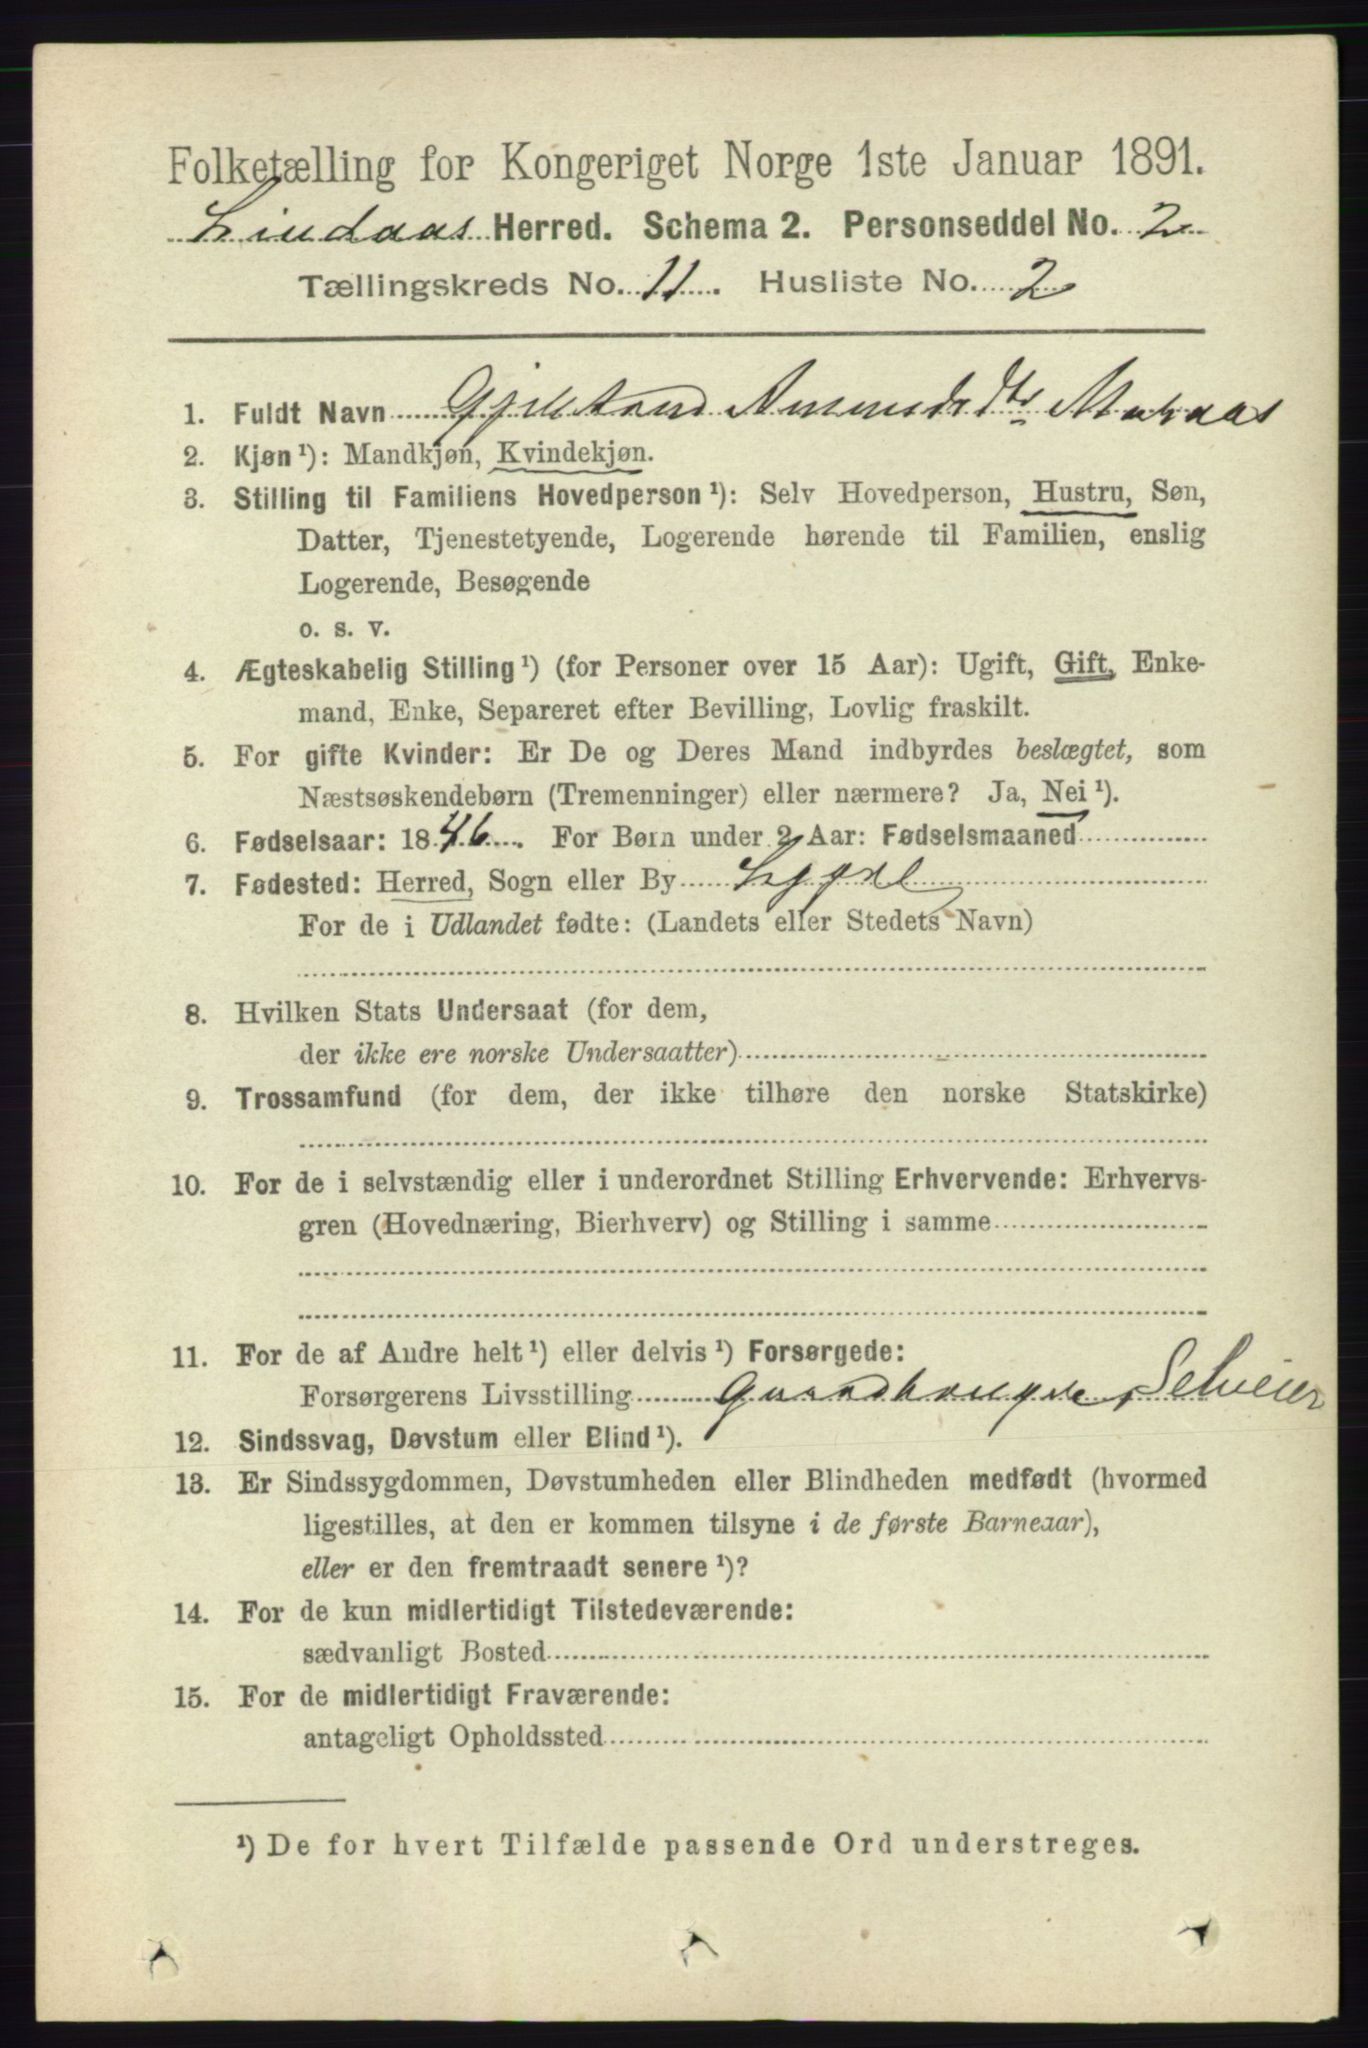 Folketælling for Kongeriget Norge 1ste Januar 1891.
Lindaas Herred. Schema 2. Personseddel No. 2
Tællingskreds No. 11. Husliste No. 2
1. Fuldt Navn
2. Kjøn¹): Mandkjøn, Kvindekjøn.
3. Stilling til Familiens Hovedperson¹): Selv Hovedperson, Hustru, Søn,
Datter, Tjenestetyende, Logerende hørende til Familien, enslig
Logerende, Besøgende
o. s. v.
4. Ægteskabelig Stilling¹) (for Personer over 15 Aar): Ugift, Gift, Enke-
mand, Enke, Separeret efter Bevilling, Lovlig fraskilt.
5. For gifte Kvinder: Er De og Deres Mand indbyrdes beslægtet, som
Næstsøskendebørn (Tremenninger) eller nærmere? Ja, Nei¹).
6. Fødselsaar: 1846. For Børn under 2 Aar: Fødselsmaaned
7. Fødested: Herred, Sogn eller By
For de i Udlandet fødte: (Landets eller Stedets Navn)
8. Hvilken Stats Undersaat (for dem,
der ikke ere norske Undersaatter)
9. Trossamfund (for dem, der ikke tilhøre den norske Statskirke)
10. For de i selvstændig eller i underordnet Stilling Erhvervende: Erhvervs-
gren (Hovednæring, Bierhverv) og Stilling i samme
11. For de af Andre helt¹) eller delvis¹) Forsørgede:
Forsørgerens Livsstilling Selveier
12. Sindssvag, Døvstum eller Blind¹).
13. Er Sindssygdommen, Døvstumheden eller Blindheden medfødt (hvormed
ligestilles, at den er kommen tilsyne i de første Barneaar),
eller er den fremtraadt senere¹)?
14. For de kun midlertidigt Tilstedeværende:
sædvanligt Bosted
15. For de midlertidigt Fraværende:
antageligt Opholdssted
¹) De for hvert Tilfælde passende Ord understreges.